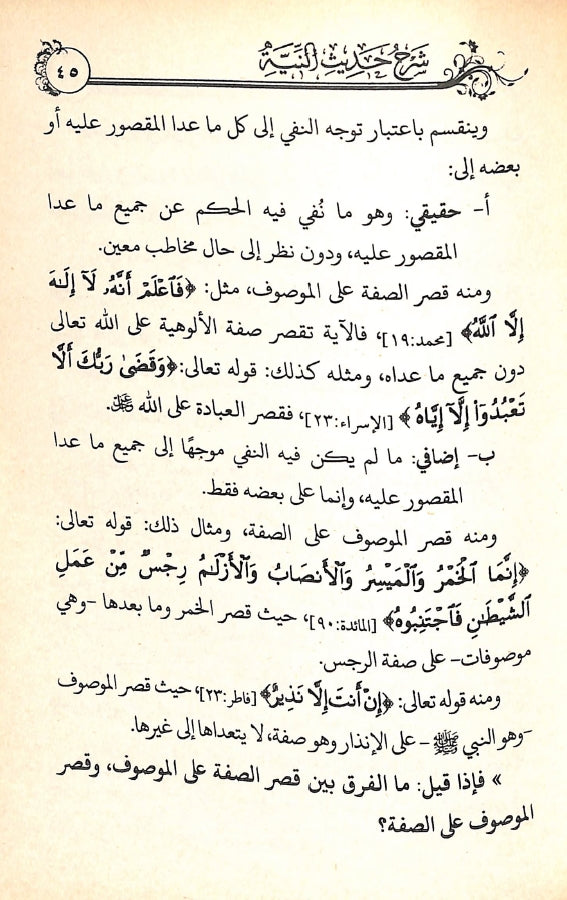 شرح حديث النية
٤٥
وينقسم باعتبار توجه النفي إلى كل ما عدا المقصور عليه أو
بعضه إلى:
أ- حقيقي: وهو ما نُفي فيه الحكم عن جميع ما عدا
المقصور عليه، ودون نظر إلى حال مخاطب معين.
ومنه قصر الصفة على الموصوف، مثل: ﴿فَٱعْلَمْ أَنَّهُۥ لَآ إِلَٰهَ
إِلَّا ٱللَّهُ﴾ [محمد:١٩]، فالآية تقصر صفة الألوهية على الله تعالى
دون جميع ما عداه، ومثله كذلك: قوله تعالى: ﴿وَقَضَىٰ رَبُّكَ أَلَّا
تَعْبُدُوٓا۟ إِلَّآ إِيَّاهُ﴾ [الإسراء:٢٣]، فقصر العبادة على الله ﷻ.
ب- إضافي: ما لم يكن فيه النفي موجهًا إلى جميع ما عدا
المقصور عليه، وإنما على بعضه فقط.
ومنه قصر الموصوف على الصفة، ومثال ذلك: قوله تعالى:
﴿إِنَّمَا ٱلْخَمْرُ وَٱلْمَيْسِرُ وَٱلْأَنصَابُ وَٱلْأَزْلَٰمُ رِجْسٌ مِّنْ عَمَلِ
ٱلشَّيْطَٰنِ فَٱجْتَنِبُوهُ﴾ [المائدة:٩٠]، حيث قصر الخمر وما بعدها -وهي
موصوفات- على صفة الرجس.
ومنه قوله تعالى: ﴿إِنْ أَنتَ إِلَّا نَذِيرٌ﴾ [فاطر:٢٣]، حيث قصر الموصوف
-وهو النبي ﷺ- على الإنذار وهو صفة، لا يتعداها إلى غيرها.
» فإذا قيل: ما الفرق بين قصر الصفة على الموصوف، وقصر
الموصوف على الصفة؟